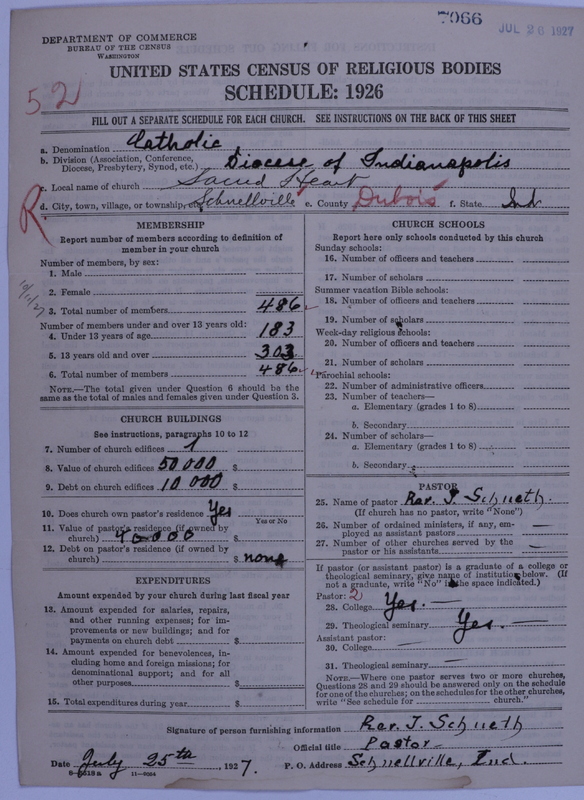 7066
JUL 26 1927
DEPARTMENT OF COMMERCE
BUREAU OF THE CENSUS
WASHINGTON
UNITED STATES CENSUS OF RELIGIOUS BODIES
SCHEDULE: 1926
52
FILL OUT A SEPARATE SCHEDULE FOR EACH CHURCH. SEE INSTRUCTIONS ON THE BACK OF THIS SHEET
a. Denomination Catholic
b. Division (Association, Conference, Diocese, Presbytery, Synod, etc.) Diocese of Indianapolis
c. Local name of church Sacred Heart
d. City, town, village, or township, Schnellville e. County Dubois f. State Ind
R
MEMBERSHIP
Report number of members according to definition of member in your church
Number of members, by sex:
1. Male
2. Female
3. Total number of members 486
Number of members under and over 13 years old:
4. Under 13 years of age 183
5. 13 years old and over 303
6. Total number of members 486
NOTE.—The total given under Question 6 should be the same as the total of males and females given under Question 3.
CHURCH BUILDINGS
See instructions, paragraphs 10 to 12
7. Number of church edifices 1
8. Value of church edifices 50 000 $
9. Debt on church edifices 10 000 $
10. Does church own pastor's residence Yes
Yes or No
11. Value of pastor's residence (if owned by church) $
12. Debt on pastor's residence (if owned by church) $ none
EXPENDITURES
Amount expended by your church during last fiscal year
13. Amount expended for salaries, repairs, and other running expenses; for improvements or new buildings; and for payments on church debt $
14. Amount expended for benevolences, including home and foreign missions; for denominational support; and for all other purposes $
15. Total expenditures during year $
CHURCH SCHOOLS
Report here only schools conducted by this church
Sunday schools:
16. Number of officers and teachers
17. Number of scholars
Summer vacation Bible schools:
18. Number of officers and teachers
19. Number of scholars
Week-day religious schools:
20. Number of officers and teachers
21. Number of scholars
Parochial schools:
22. Number of administrative officers
23. Number of teachers—
a. Elementary (grades 1 to 8)
b. Secondary
24. Number of scholars—
a. Elementary (grades 1 to 8)
b. Secondary
PASTOR
25. Name of pastor Rev. J. Schneth.
(If church has no pastor, write "None")
26. Number of ordained ministers, if any, employed as assistant pastors —
27. Number of other churches served by the pastor or his assistants —
If pastor (or assistant pastor) is a graduate of a college or theological seminary, give name of institution below. (If not a graduate, write "No" in the space indicated.)
Pastor: 2
28. College Yes. —
29. Theological seminary Yes. —
Assistant pastor:
30. College —
31. Theological seminary —
NOTE.—Where one pastor serves two or more churches, Questions 28 and 29 should be answered only on the schedule for one of the churches; on the schedules for the other churches, write "See schedule for church."
Signature of person furnishing information Rev. J. Schneth
Official title Pastor
Date July 25th, 1927. P. O. Address Schnellville, Ind.
11—6004